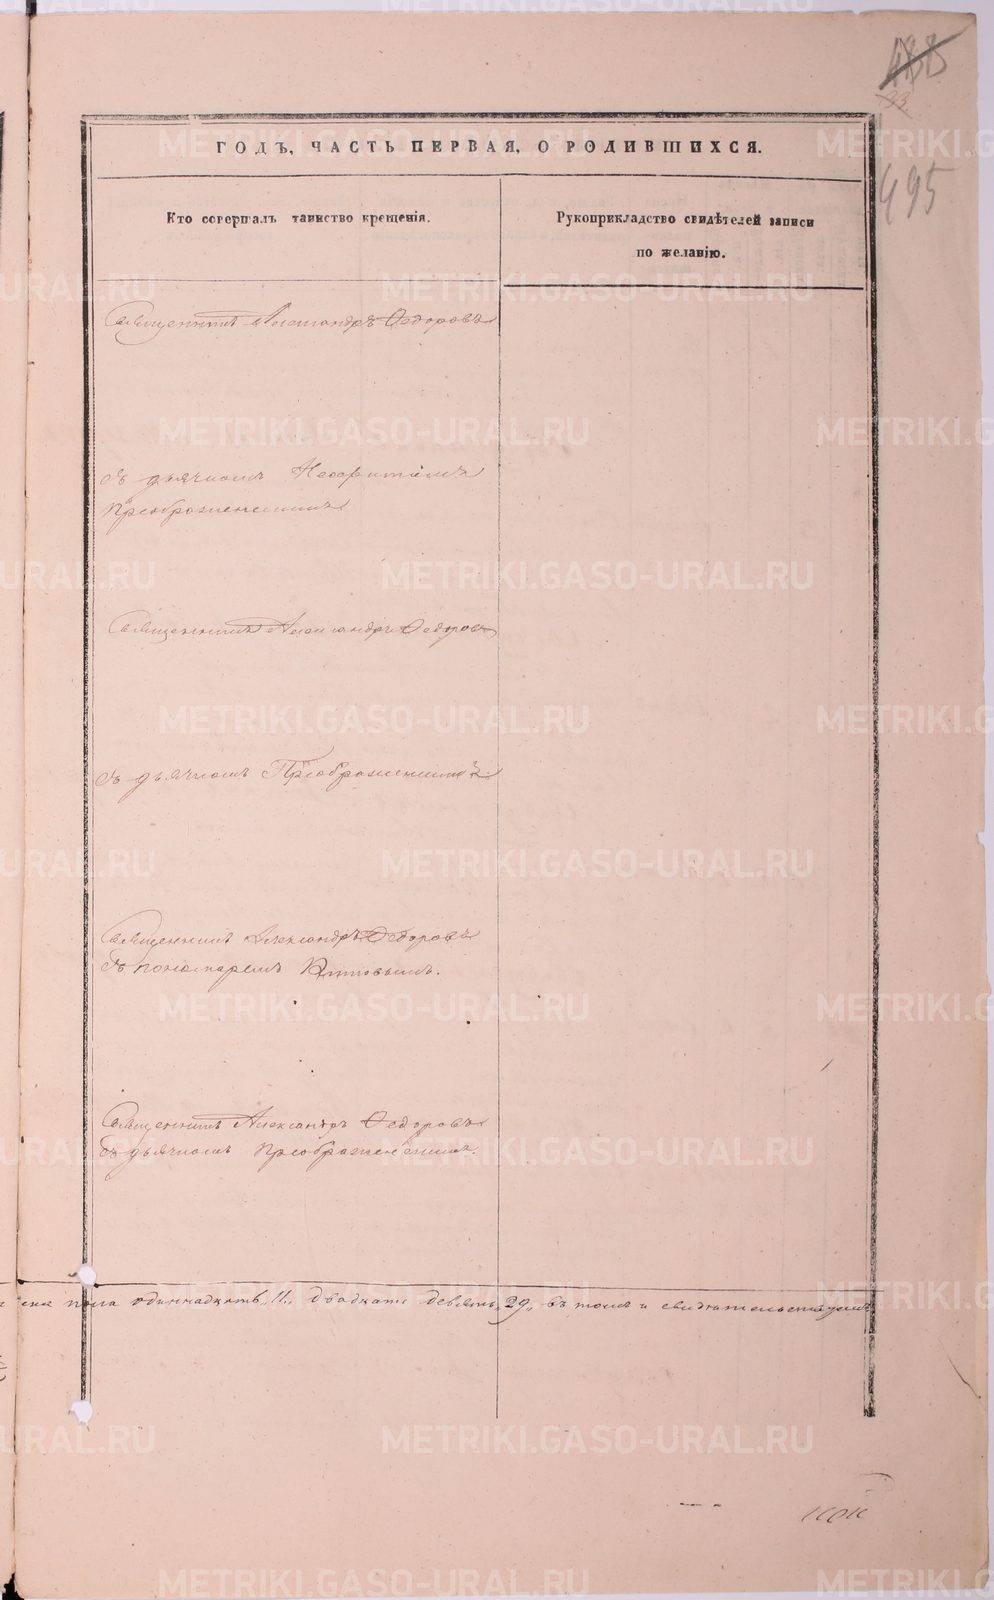 488
33
495
ГОДЪ, ЧАСТЬ ПЕРВАЯ, О РОДИВШИХСЯ.
Кто совершалъ таинство крещенія.
Рукоприкладство свидѣтелей записи
по желанію.
Священникъ Александръ Ѳедоровъ
Съ дьячкомъ Неофитомъ
Преображенскимъ
Священникъ Александръ Ѳедоровъ
Съ дьячкомъ Преображенскимъ
Священникъ Александръ Ѳедоровъ
Съ пономаремъ
Священникъ Александръ Ѳедоровъ
Съ дьячкомъ Преображенскимъ.
пола одиннадцать „11„ двадцать девять „29„ въ томъ и свидѣтельствуемъ
METRIKI.GASO-URAL.RU